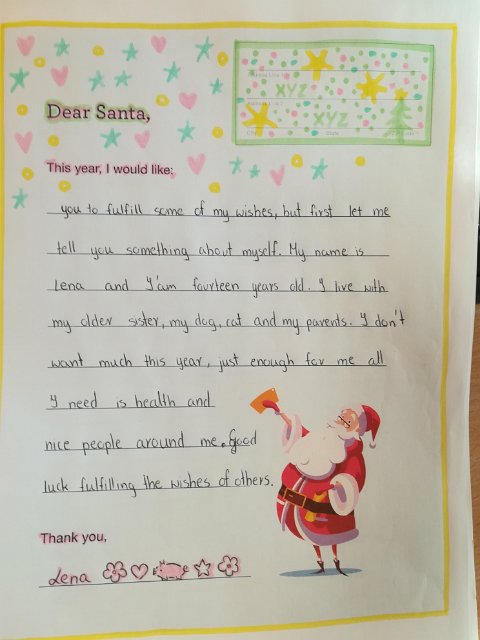 XYZ
XYZ
Dear Santa,
This year, I would like:
you to fulfill some of my wishes, but first let me
tell you something about myself. My name is
Lena and I'am fourteen years old. I live with
my older sister, my dog, cat and my parents. I don't
want much this year, just enough for me all
I need is health and
nice people around me. Good
luck fulfilling the wishes of others.
Thank you,
Lena